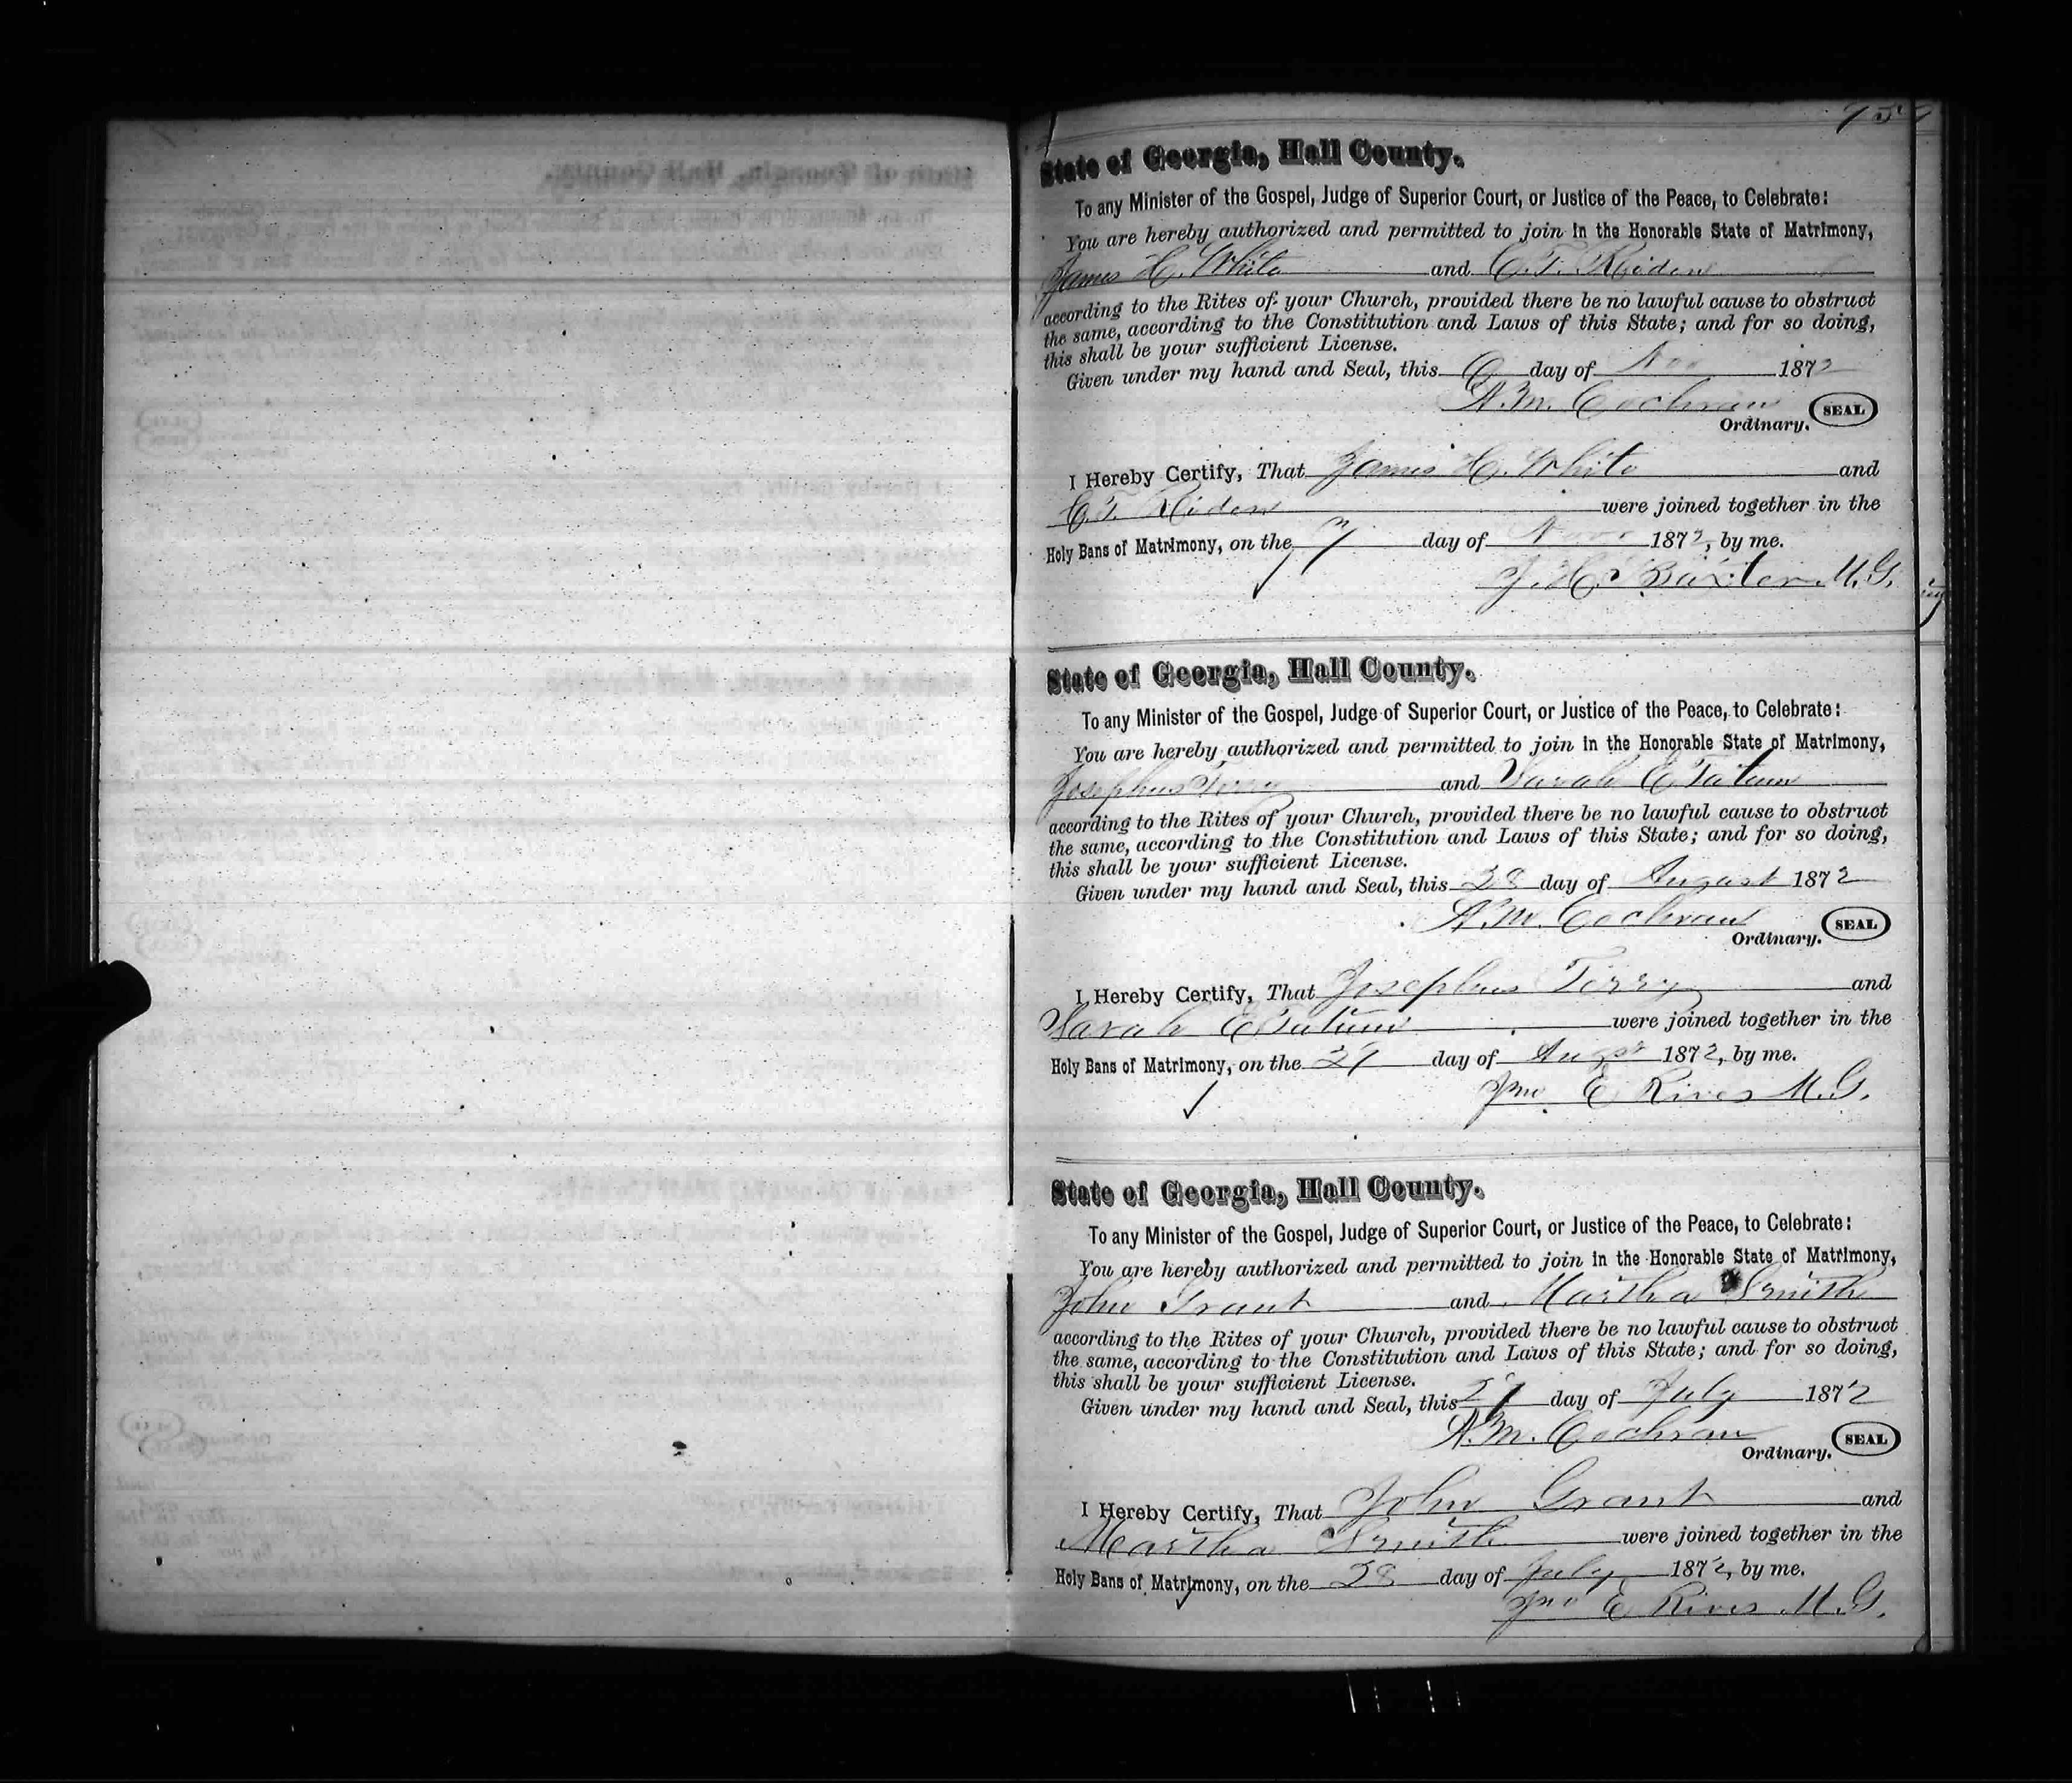 State of Georgia, Hall County.
To any Minister of the Gospel, Judge of Superior Court, or Justice of the Peace, to Celebrate:
You are hereby authorized and permitted to join in the Honorable State of Matrimony,
James H. White and C. T.
according to the Rites of your Church, provided there be no lawful cause to obstruct
the same, according to the Constitution and Laws of this State; and for so doing,
this shall be your sufficient License.
Given under my hand and Seal, this 6 day of Nov 1872
A. M. Cochran SEAL
Ordinary.
I Hereby Certify, That James H. White and
C. T. were joined together in the
Holy Bans of Matrimony, on the 7 day of Nov 1872, by me.
J. H. Baxter M. G.
State of Georgia, Hall County.
To any Minister of the Gospel, Judge of Superior Court, or Justice of the Peace, to Celebrate:
You are hereby authorized and permitted to join in the Honorable State of Matrimony,
Josephus Terry and Sarah E Tatum
according to the Rites of your Church, provided there be no lawful cause to obstruct
the same, according to the Constitution and Laws of this State; and for so doing,
this shall be your sufficient License.
Given under my hand and Seal, this 28 day of August 1872
A. M. Cochran SEAL
Ordinary.
I Hereby Certify, That Josephus Terry and
Sarah E Tatum were joined together in the
Holy Bans of Matrimony, on the day of August 1872, by me.
Jno E Rives M. G.
State of Georgia, Hall County.
To any Minister of the Gospel, Judge of Superior Court, or Justice of the Peace, to Celebrate:
You are hereby authorized and permitted to join in the Honorable State of Matrimony,
John Grant and Martha Smith
according to the Rites of your Church, provided there be no lawful cause to obstruct
the same, according to the Constitution and Laws of this State; and for so doing,
this shall be your sufficient License.
Given under my hand and Seal, this 27 day of July 1872
A. M. Cochran SEAL
Ordinary.
I Hereby Certify, That John Grant and
Martha Smith were joined together in the
Holy Bans of Matrimony, on the 28 day of July 1872, by me.
Jno E Rives M. G.